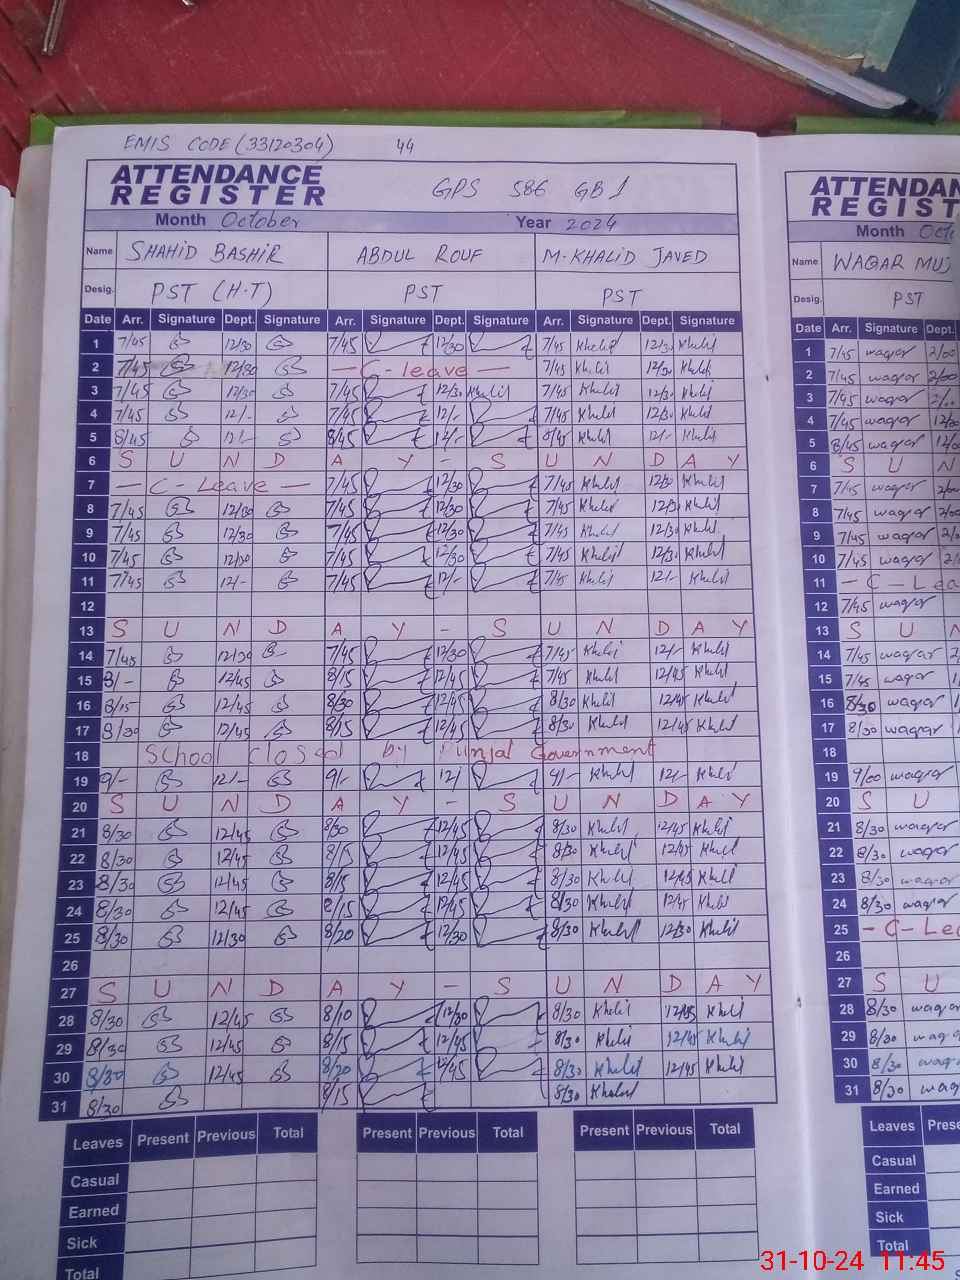 EMIS CODE (33120304) 44
ATTENDANCE REGISTER GPS 586 GB 1
Month October Year 2024
Name SHAHID BASHIR ABDUL ROUF M. KHALID JAVED
Desig. PST (H.T) PST PST
Date Arr. Signature Dept. Signature Arr. Signature Dept. Signature Arr. Signature Dept. Signature
1 7/45 12/30 7/45 12/30 7/45 Khalid 12/30 Khalid
2 7/45 12/30 — C - leave — 7/45 Khalid 12/30 Khalid
3 7/45 12/30 7/45 12/30 Khalid 7/45 Khalid 12/30 Khalid
4 7/45 12/- 7/45 12/- 7/45 Khalid 12/30 Khalid
5 8/45 12/- 8/45 12/- 8/45 Khalid 12/- Khalid
6 S U N D A Y - S U N D A Y
7 — C - Leave — 7/45 12/30 7/45 Khalid 12/30 Khalid
8 7/45 12/30 7/45 12/30 7/45 Khalid 12/30 Khalid
9 7/45 12/30 7/45 12/30 7/45 Khalid 12/30 Khalid
10 7/45 12/30 7/45 12/30 7/45 Khalid 12/30 Khalid
11 7/45 12/- 7/45 12/- 7/45 Khalid 12/- Khalid
12
13 S U N D A Y - S U N D A Y
14 7/45 12/30 7/45 12/30 7/45 Khalid 12/- Khalid
15 8/- 12/45 8/15 12/45 7/45 Khalid 12/45 Khalid
16 8/15 12/45 8/30 12/45 8/30 Khalid 12/45 Khalid
17 8/30 12/45 8/15 12/45 8/30 Khalid 12/45 Khalid
18 School closed by Punjab Government
19 9/- 12/- 9/- 12/ 9/- Khalid 12/- Khalid
20 S U N D A Y - S U N D A Y
21 8/30 12/45 8/30 12/45 8/30 Khalid 12/45 Khalid
22 8/30 12/45 8/15 12/45 8/30 Khalid 12/45 Khalid
23 8/30 12/45 8/15 12/45 8/30 Khalid 12/45 Khalid
24 8/30 12/45 8/15 12/45 8/30 Khalid 12/45 Khalid
25 8/30 12/30 8/20 12/30 8/30 Khalid 12/30 Khalid
26
27 S U N D A Y - S U N D A Y
28 8/30 12/45 8/10 12/30 8/30 Khalid 12/45 Khalid
29 8/30 12/45 8/15 12/45 8/30 Khalid 12/45 Khalid
30 8/30 12/45 8/20 12/45 8/30 Khalid 12/45 Khalid
31 8/30 8/15 8/30 Khalid
Leaves Present Previous Total Present Previous Total Present Previous Total
Casual
Earned
Sick
Total
ATTENDAN
REGIST
Month Octo
Name WAQAR MUJ
Desig. PST
Date Arr. Signature Dept.
1 7/45 waqar 2/00
2 7/45 waqar 2/00
3 7/45 waqar 2/00
4 7/45 waqar 12/00
5 8/45 waqar 12/00
6 S U N
7 7/45 waqar 2/00
8 7/45 waqar 2/00
9 7/45 waqar
10 7/45 waqar
11 — C - Lea
12 7/45 waqar
13 S U N
14 7/45 waqar
15 7/45 waqar
16 8/30 waqar
17 8/30 waqar
18
19 9/00 waqar
20 S U
21 8/30 waqar
22 8/30 waqar
23 8/30 waqar
24 8/30 waqar
25 - C - Lea
26
27 S U
28 8/30 waqar
29 8/30 waqar
30 8/30 waqar
31 8/30 waqar
Leaves Prese
Casual
Earned
Sick
Total
31-10-24 11:45